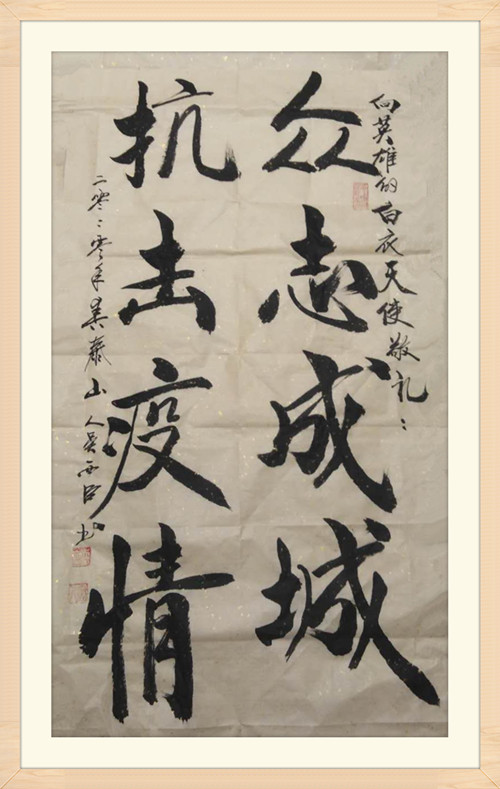 向英雄的白衣天使敬礼：
众志成城
抗击疫情
二零二零年泰山人吴书